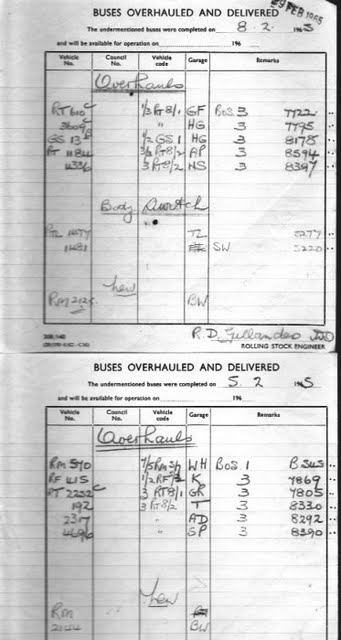 9 FEB 1965
BUSES OVERHAULED AND DELIVERED
The undermentioned buses were completed on 8. 2. 1965
and will be available for operation on 196
Vehicle No. Council No. Vehicle code Garage Remarks
Overhauls
RT 610 C 1/3 RT8/1 GF BOS 3 7722
3609 C " HG 3 7795
GS 13 B 1/2 GS 1 HG 3 8178
RT 1184 3/3 RT8/2 AP 3 8594
4336 3 RT8/2 NS 3 8397
Body Switch
RTL 1477 TL 5277
1481 SW 5220
New
RM 2125 BW
R.D. 
ROLLING STOCK ENGINEER
BUSES OVERHAULED AND DELIVERED
The undermentioned buses were completed on 5. 2 1965
and will be available for operation on 196
Vehicle No. Council No. Vehicle code Garage Remarks
Overhauls
RM 570 7/5 RM 3/7 WH BOS 1 B 545
RF 415 1/2 RF/3 K 3 7869
RT 2252 C 3 RT8/1 GR 3 7805
192 3 RT8/2 T 3 8330
2317 " AD 3 8292
4696 " SP 3 8390
New
RM
2124 BW